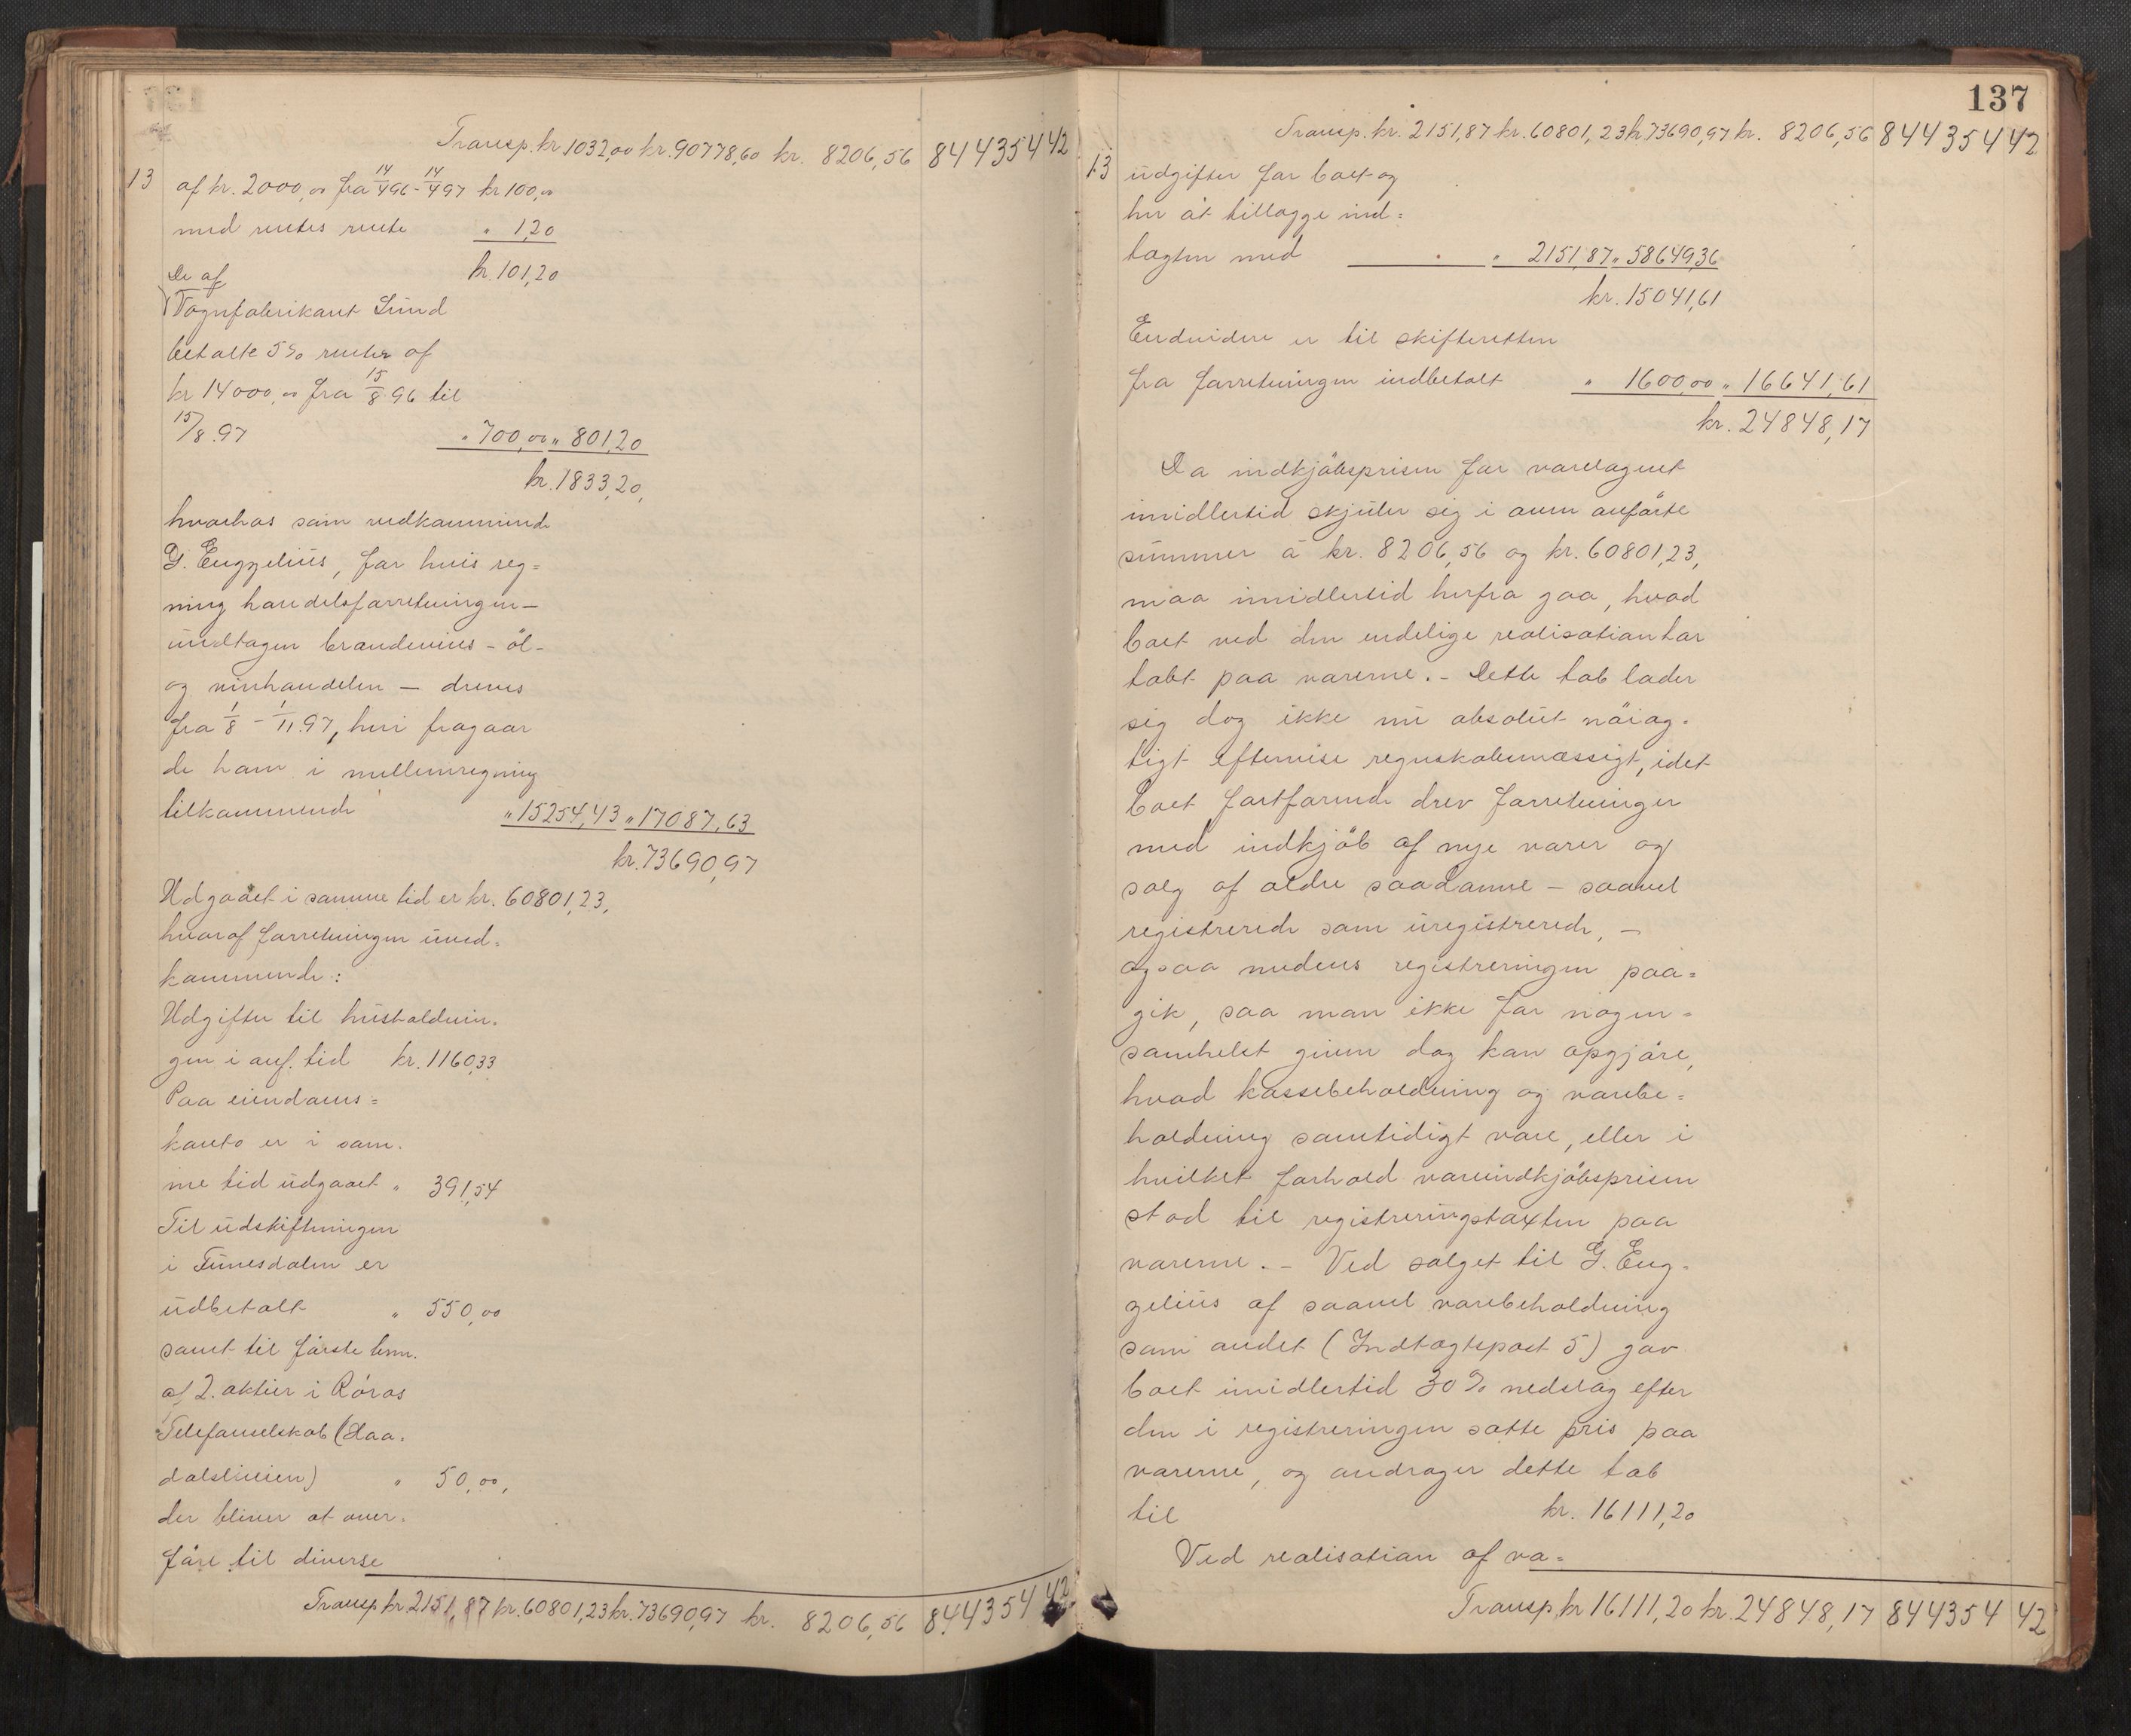 Transp. kr 1032,00 kr. 90778,60 kr. 8206,56 844354 42
13 af kr. 2000,00 fra 14/4 96 - 14/4 97 kr 100,00
med rentes rente " 1,20
De af kr. 101,20
Vognfabrikant Lund
betalte 5% renter af
kr 14000,00 fra 15/8 96 til
15/8.97 " 700,00 " 801,20
kr. 1833,20,
hvorhos som vedkommende
G. Engzelius, for hvis reg=
ning handelsforretningen —
undtagen brændevins - öl -
og vinhandelen — dreves
fra 1/8 - 1/11.97, heri fragaar
de ham i mellemregning
tilkommende " 15254,43 " 17087,63
kr. 73690,97
Udgaaet i samme tid er kr. 60801,23,
hvoraf forretningen uved=
kommende:
Udgifter til husholdnin=
gen i anf. tid kr. 1160,33
Paa eiendoms=
konto er i sam=
me tid udgaaet " 391,54
Til udskiftningen
i Funesdalen er
udbetalt " 550,00
samt til förste term.
af 2. aktier i Röros
Telefonselskab (Haa=
dalslinien) " 50,00,
der bliver at over=
före til diverse
Transp kr 2151,87 kr. 60801,23 kr. 73690,97 kr. 8206,56 844354 42
137
Transp. kr. 2151,87 kr. 60801,23 kr 73690,97 kr. 8206,56 844354 42
13 udgifter for boet og
her at tillægge ind=
tægten med " 2151,87 " 58649,36
kr. 15041,61
Endvidere er til skifteretten
fra forretningen indbetalt " 1600,00 " 16641,61
kr. 24848,17
Da indkjöbsprisen for varelageret
imidlertid skjuler sig i oven anförte
summer á kr. 8206,56 og kr. 60801,23,
maa imidlertid herfra gaa, hvad
boet ved den endelige realisation har
tabt paa varerne. - Dette tab lader
sig dog ikke nu absolut nöiag=
tigt eftervise regnskabsmæssigt, idet
boet fortfarende drev forretninger
med indkjöb af nye varer og
salg af ældre saadanne - saavel
registrerede som uregistrerede, -
ogsaa medens registreringen paa=
gik, saa man ikke for nogen=
somhelst given dag kan opgjöre,
hvad kassebeholdning og varebe=
holdning samtidigt vare, eller i
hvilket forhold vareindkjöbsprisen
stod til registreringstaxten paa
varerne. - Ved salget til G. Eng=
zelius af saavel varebeholdning
som andet (Indtægtspost 5) gav
boet imidlertid 30% nedslag efter
den i registreringen satte pris paa
varerne, og andrager dette tab
til kr. 16111,20
Ved realisation af va=
Transp kr 16111,20 kr. 24848,17 844354 42